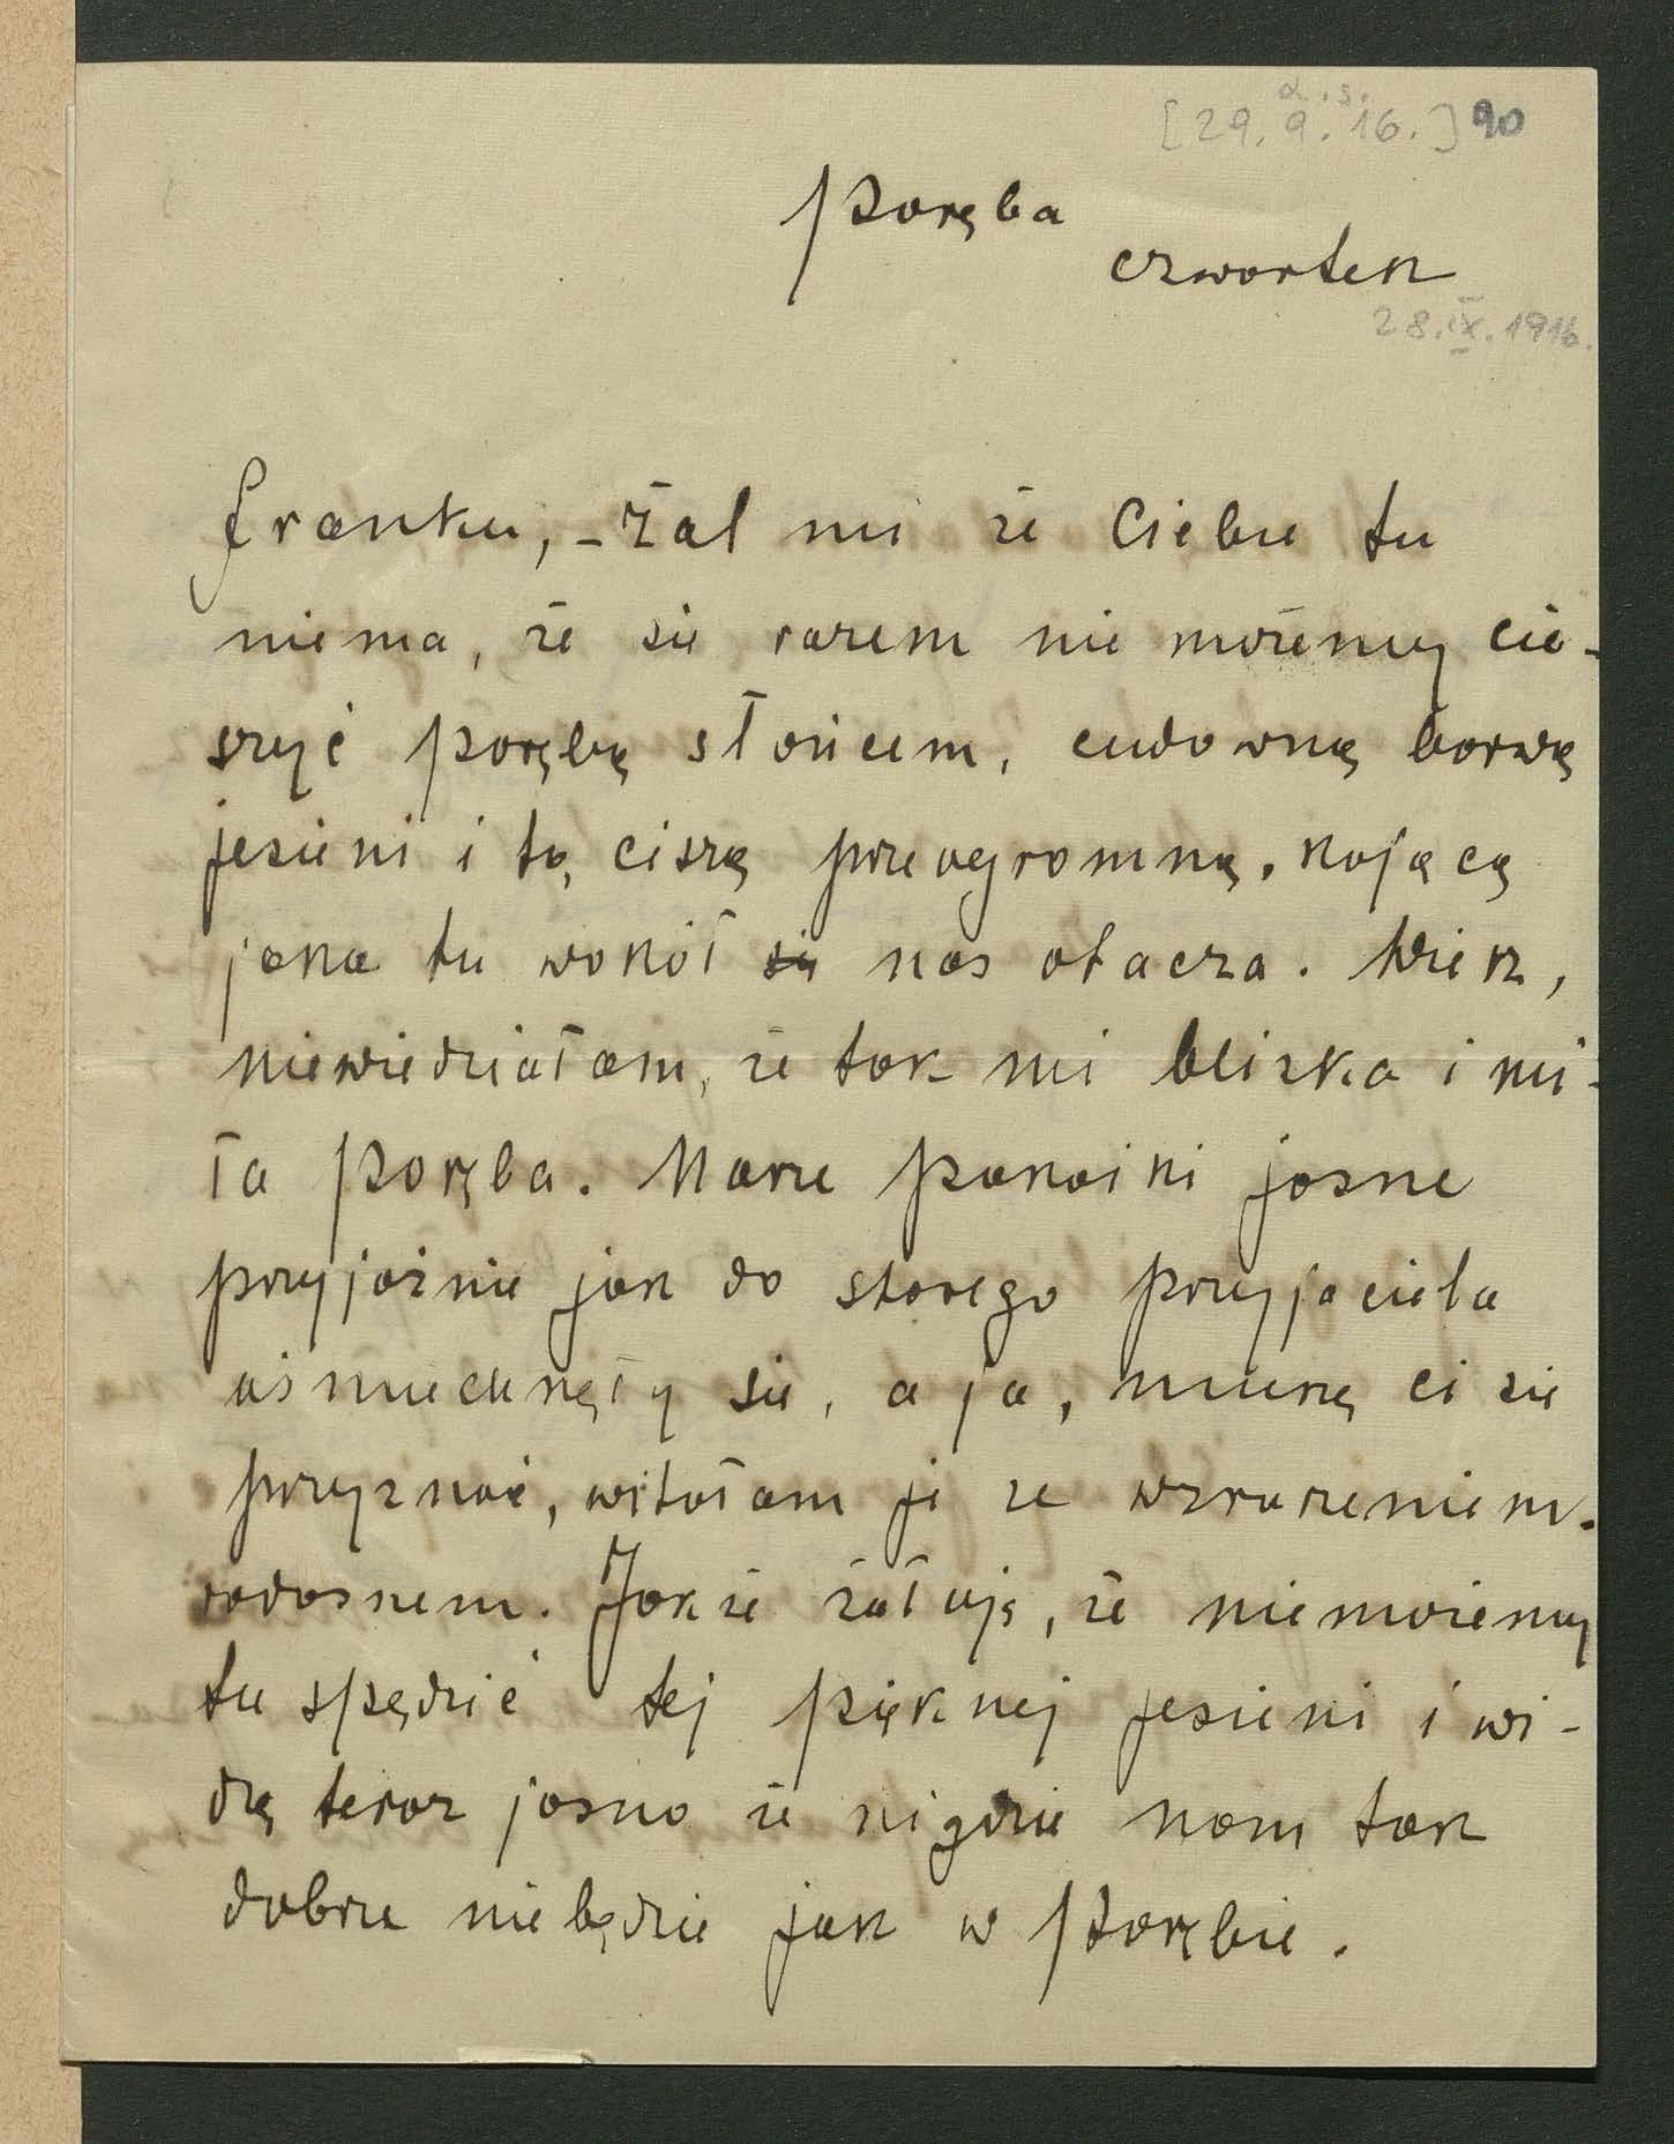 d. s.
[29. 9. 16.] 90
Poręba
czwartek
28.IX.1916.
Franku, – Żal mi że Ciebie tu
niema, że się razem nie możemy cie-
szyć Porębą słońcem, cudowną barwą
jesieni i tą ciszą przeogromną, kojącą
jaka tu wokół się nas otacza. Wiesz,
niewiedziałam, że tak mi blizka i mi-
ła Poręba. Marze pokoiki jasne
przyjaźnie jak do starego przyjaciela
uśmiechnęły się, a ja, muszę ci się
przyznać, witałam je ze wzruszeniem
radosnem. Jakże żałuję, że niemożemy
tu spędzić tej pięknej jesieni i wi-
dzę teraz jasno że nigdzie nam tak
dobrze niebędzie jak w Porębie.